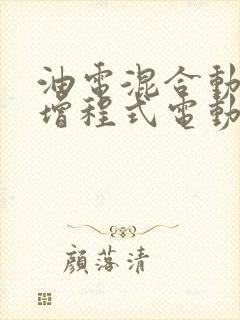 油電混合動
增程式電動
顏落清